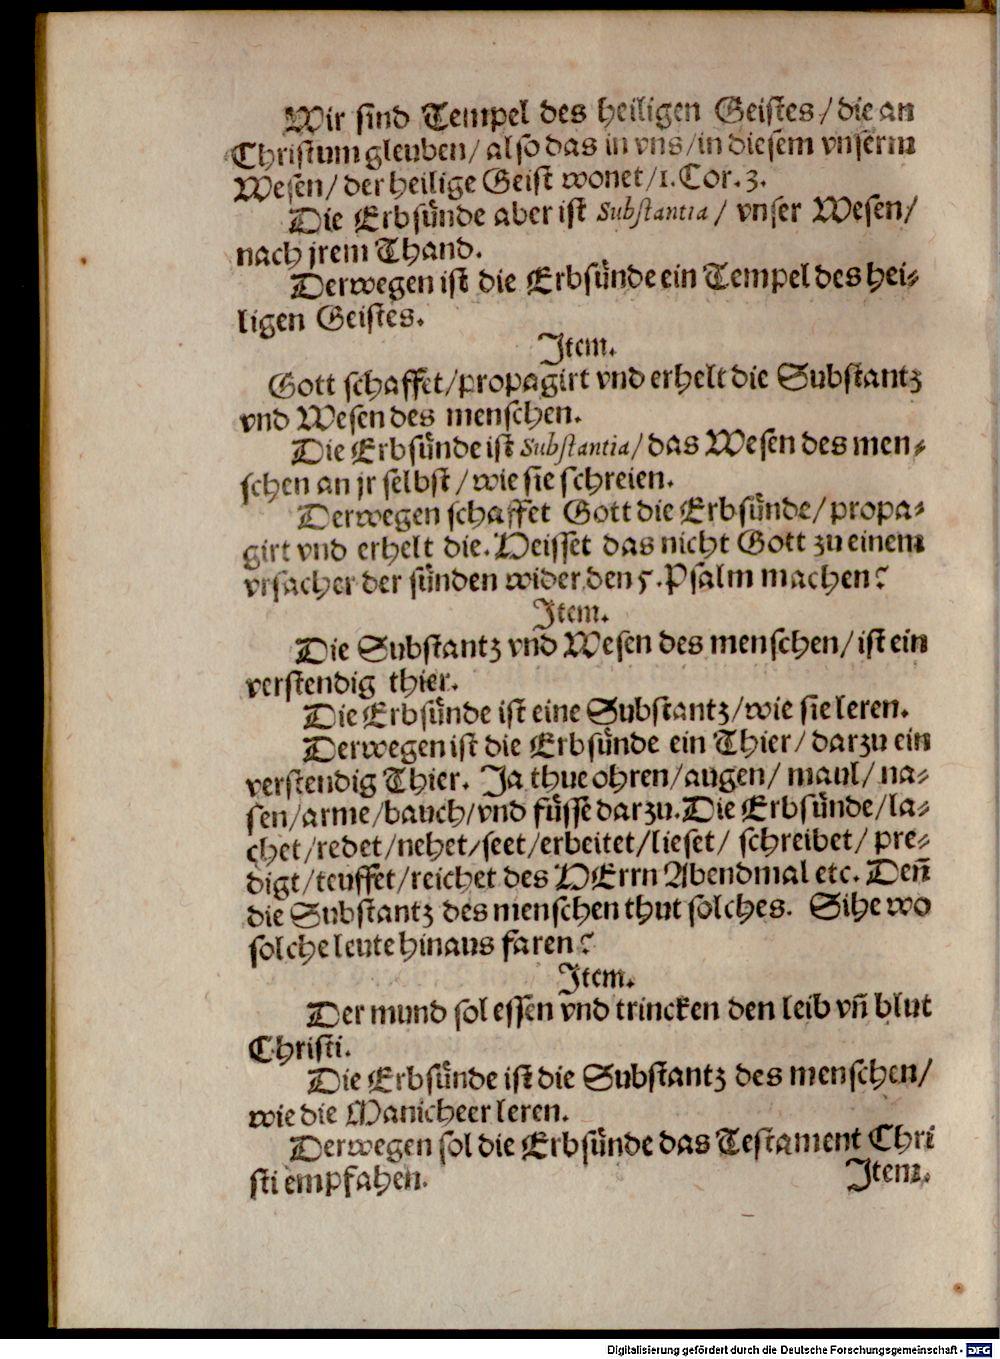 Wir sind Tempel des heiligen Geistes/ die an
Christum gleuben/ also das in vns/ in diesem vnserm
Wesen/ der heilige Geist wonet/ 1. Cor. 3.
Die Erbsünde aber ist Substantia/ vnser Wesen/
nach jrem Thand.
Derwegen ist die Erbsünde ein Tempel des hei-
ligen Geistes.
Item.
Gott schaffet/ propagirt vnd erhelt die Substantz
vnd Wesen des menschen.
Die Erbsünde ist Substantia/ das Wesen des men-
schen an jr selbst/ wie sie schreien.
Derwegen schaffet Gott die Erbsünde/ propa-
girt vnd erhelt die. Heisset das nicht Gott zu einem
vrsacher der sünden wider den 5. Psalm machen?
Item.
Die Substantz vnd Wesen des menschen/ ist ein
verstendig thier.
Die Erbsünde ist eine Substantz/ wie sie leren.
Derwegen ist die Erbsünde ein Thier/ darzu ein
verstendig Thier. Ja thue ohren/ augen/ maul/ na-
sen/ arme/ bauch/ vnd füsse darzu. Die Erbsünde/ la-
chet/ redet/ nehet/ seet/ erbeitet/ lieset/ schreibet/ pre-
digt/ teuffet/ reichet des HErrn Abendmal etc. Deñ
die Substantz des menschen thut solches. Sihe wo
solche leute hinaus faren?
Item.
Der mund sol essen vnd trincken den leib vñ blut
Christi.
Die Erbsünde ist die Substantz des menschen/
wie die Manicheer leren.
Derwegen sol die Erbsünde das Testament Chri
sti empfahen.
Item.
Digitalisierung gefördert durch die Deutsche Forschungsgemeinschaft - DFG